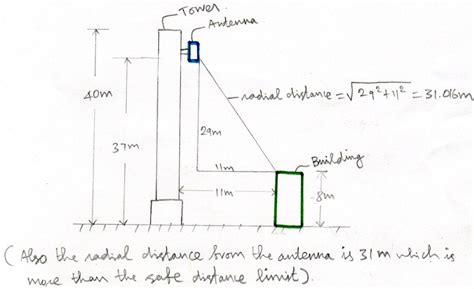 Tower.
Antenna
radial distance = √29²+11² = 31.016m
40m
37m
29m
11m
Building
11m
8m
(Also the radial distance from the antenna is 31m which is
more than the safe distance limit).